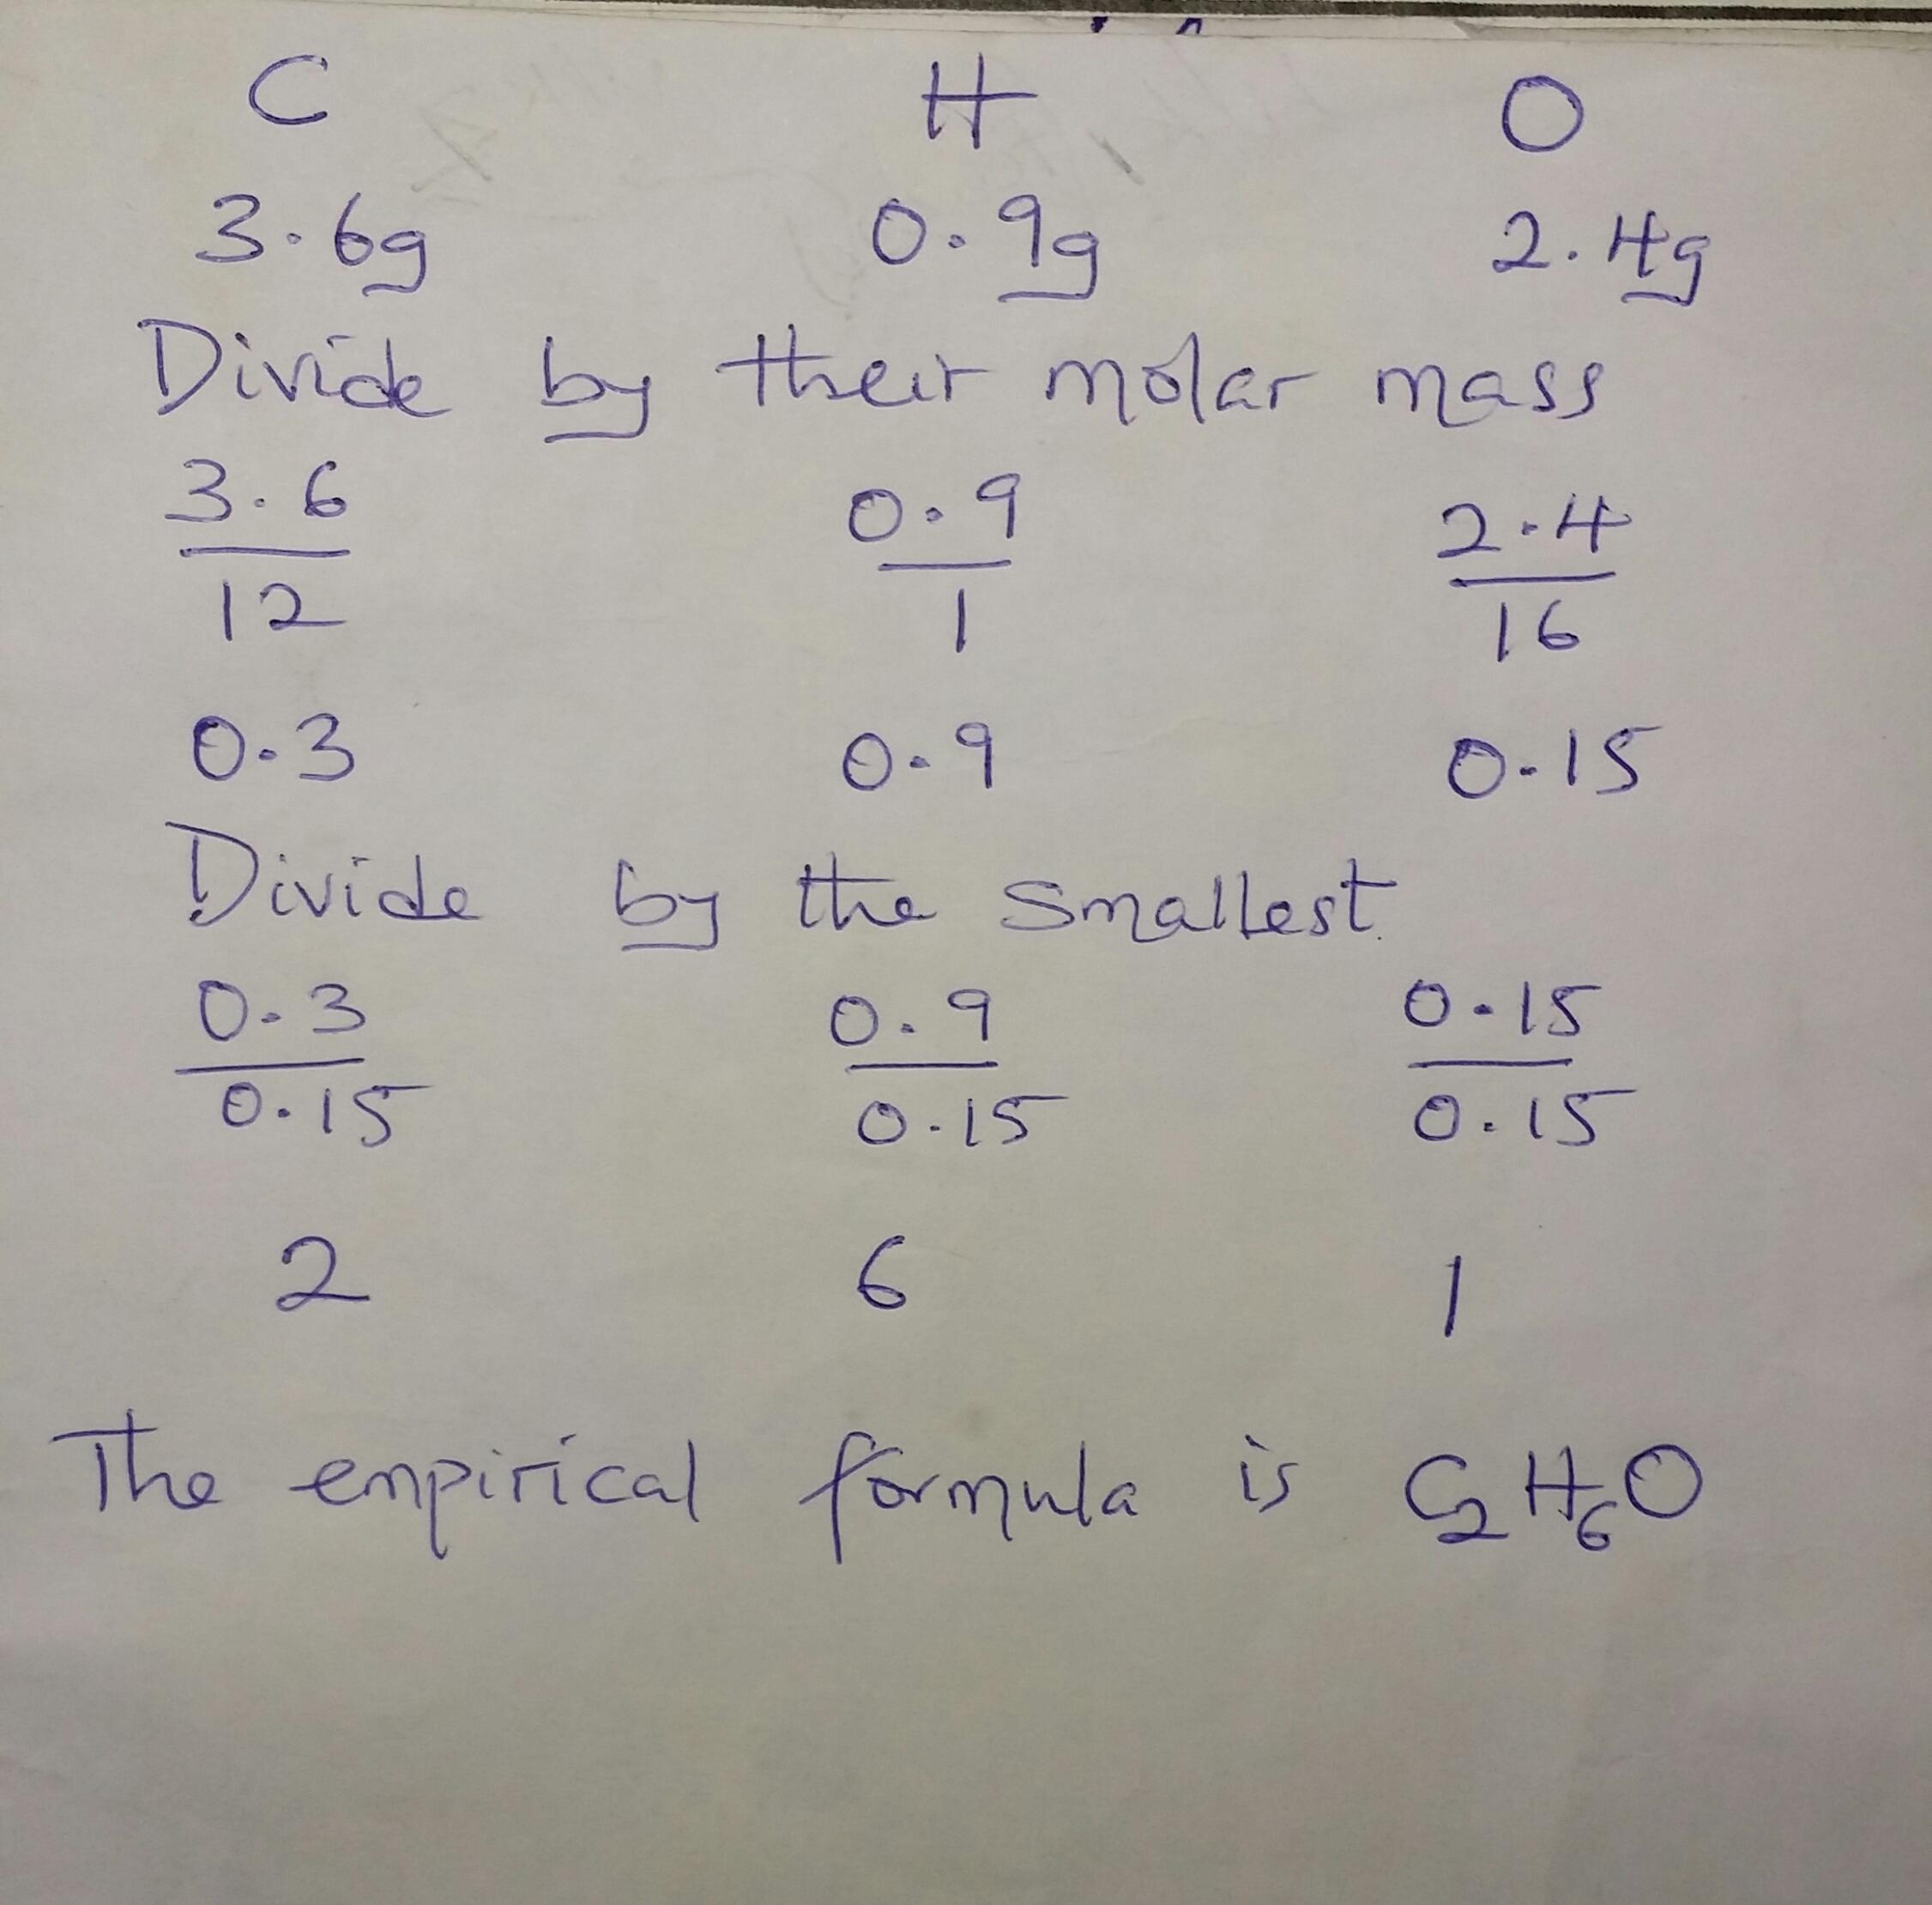 C H O
3.6g 0.9g 2.4g
Divide by their molar mass
3.6 0.9 2.4
12 1 16
0.3 0.9 0.15
Divide by the smallest.
0.3 0.9 0.15
0.15 0.15 0.15
2 6 1
The empirical formula is C₂H₆O